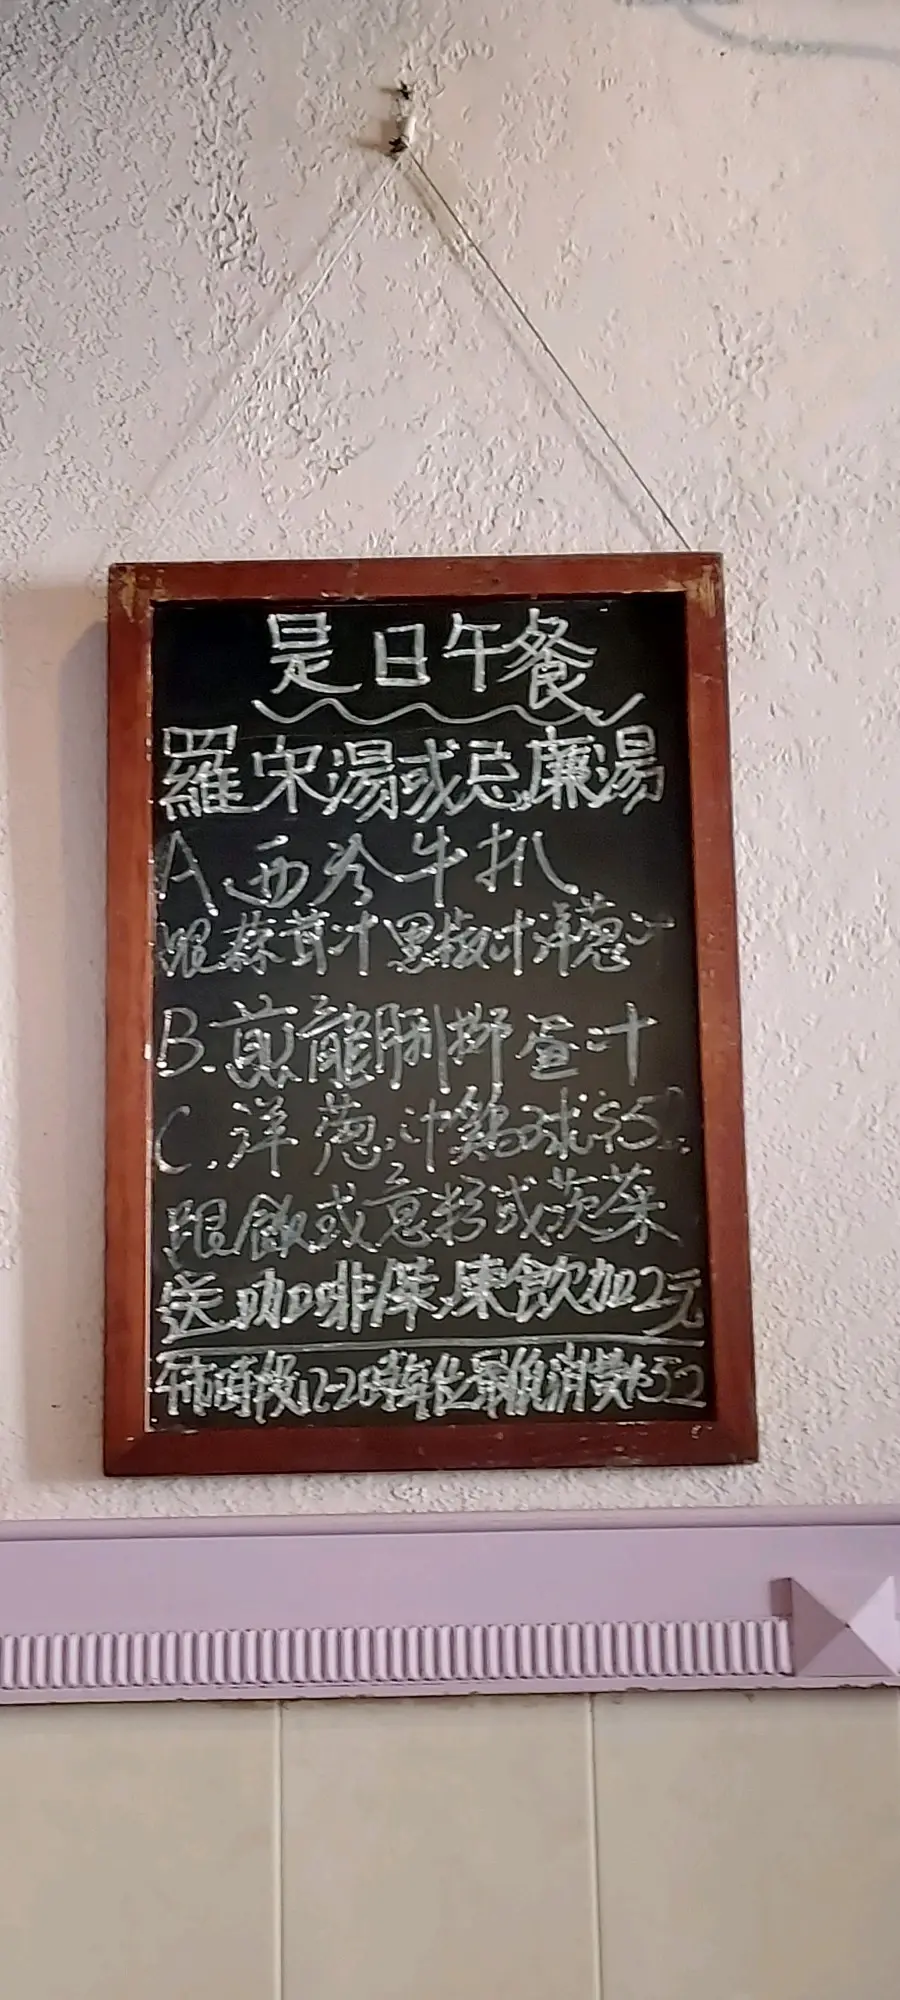 是日午餐
羅宋湯或忌廉湯
A.西冷牛扒
跟蒜茸汁黑椒汁洋葱汁
B.煎龍脷班蛋汁
C.洋葱汁雞球
跟飯或意粉或炎菜
送咖啡茶,凍飲加2元
午市時段12-2時每位最低消費$52